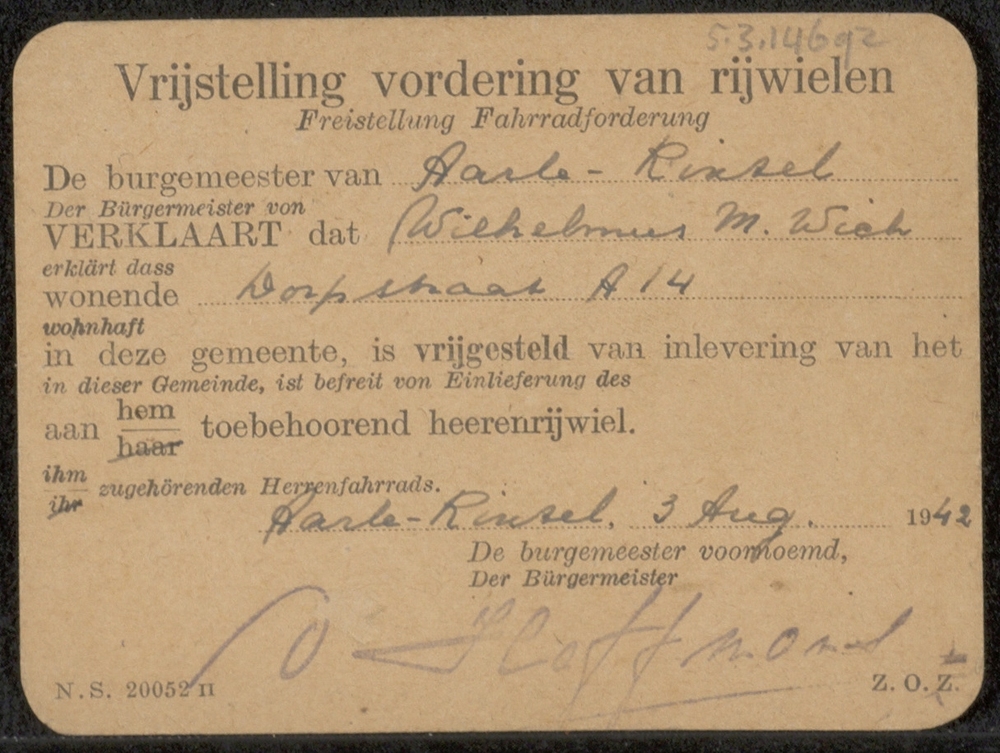 5.3.14692
Vrijstelling vordering van rijwielen
Freistellung Fahrradforderung
De burgemeester van Aarle-Rixtel
Der Bürgermeister von
VERKLAART dat Wilhelmus M. Wich
erklärt dass
wonende Dorpstraat A 14
wohnhaft
in deze gemeente, is vrijgesteld van inlevering van het
in dieser Gemeinde, ist befreit von Einlieferung des
aan hem
haar toebehoorend heerenrijwiel.
ihm
ihr zugehörenden Herrenfahrrads.
Aarle-Rixtel, 3 Aug. 1942
De burgemeester voornoemd,
Der Bürgermeister
N.S. 20052 II
Z.O.Z.